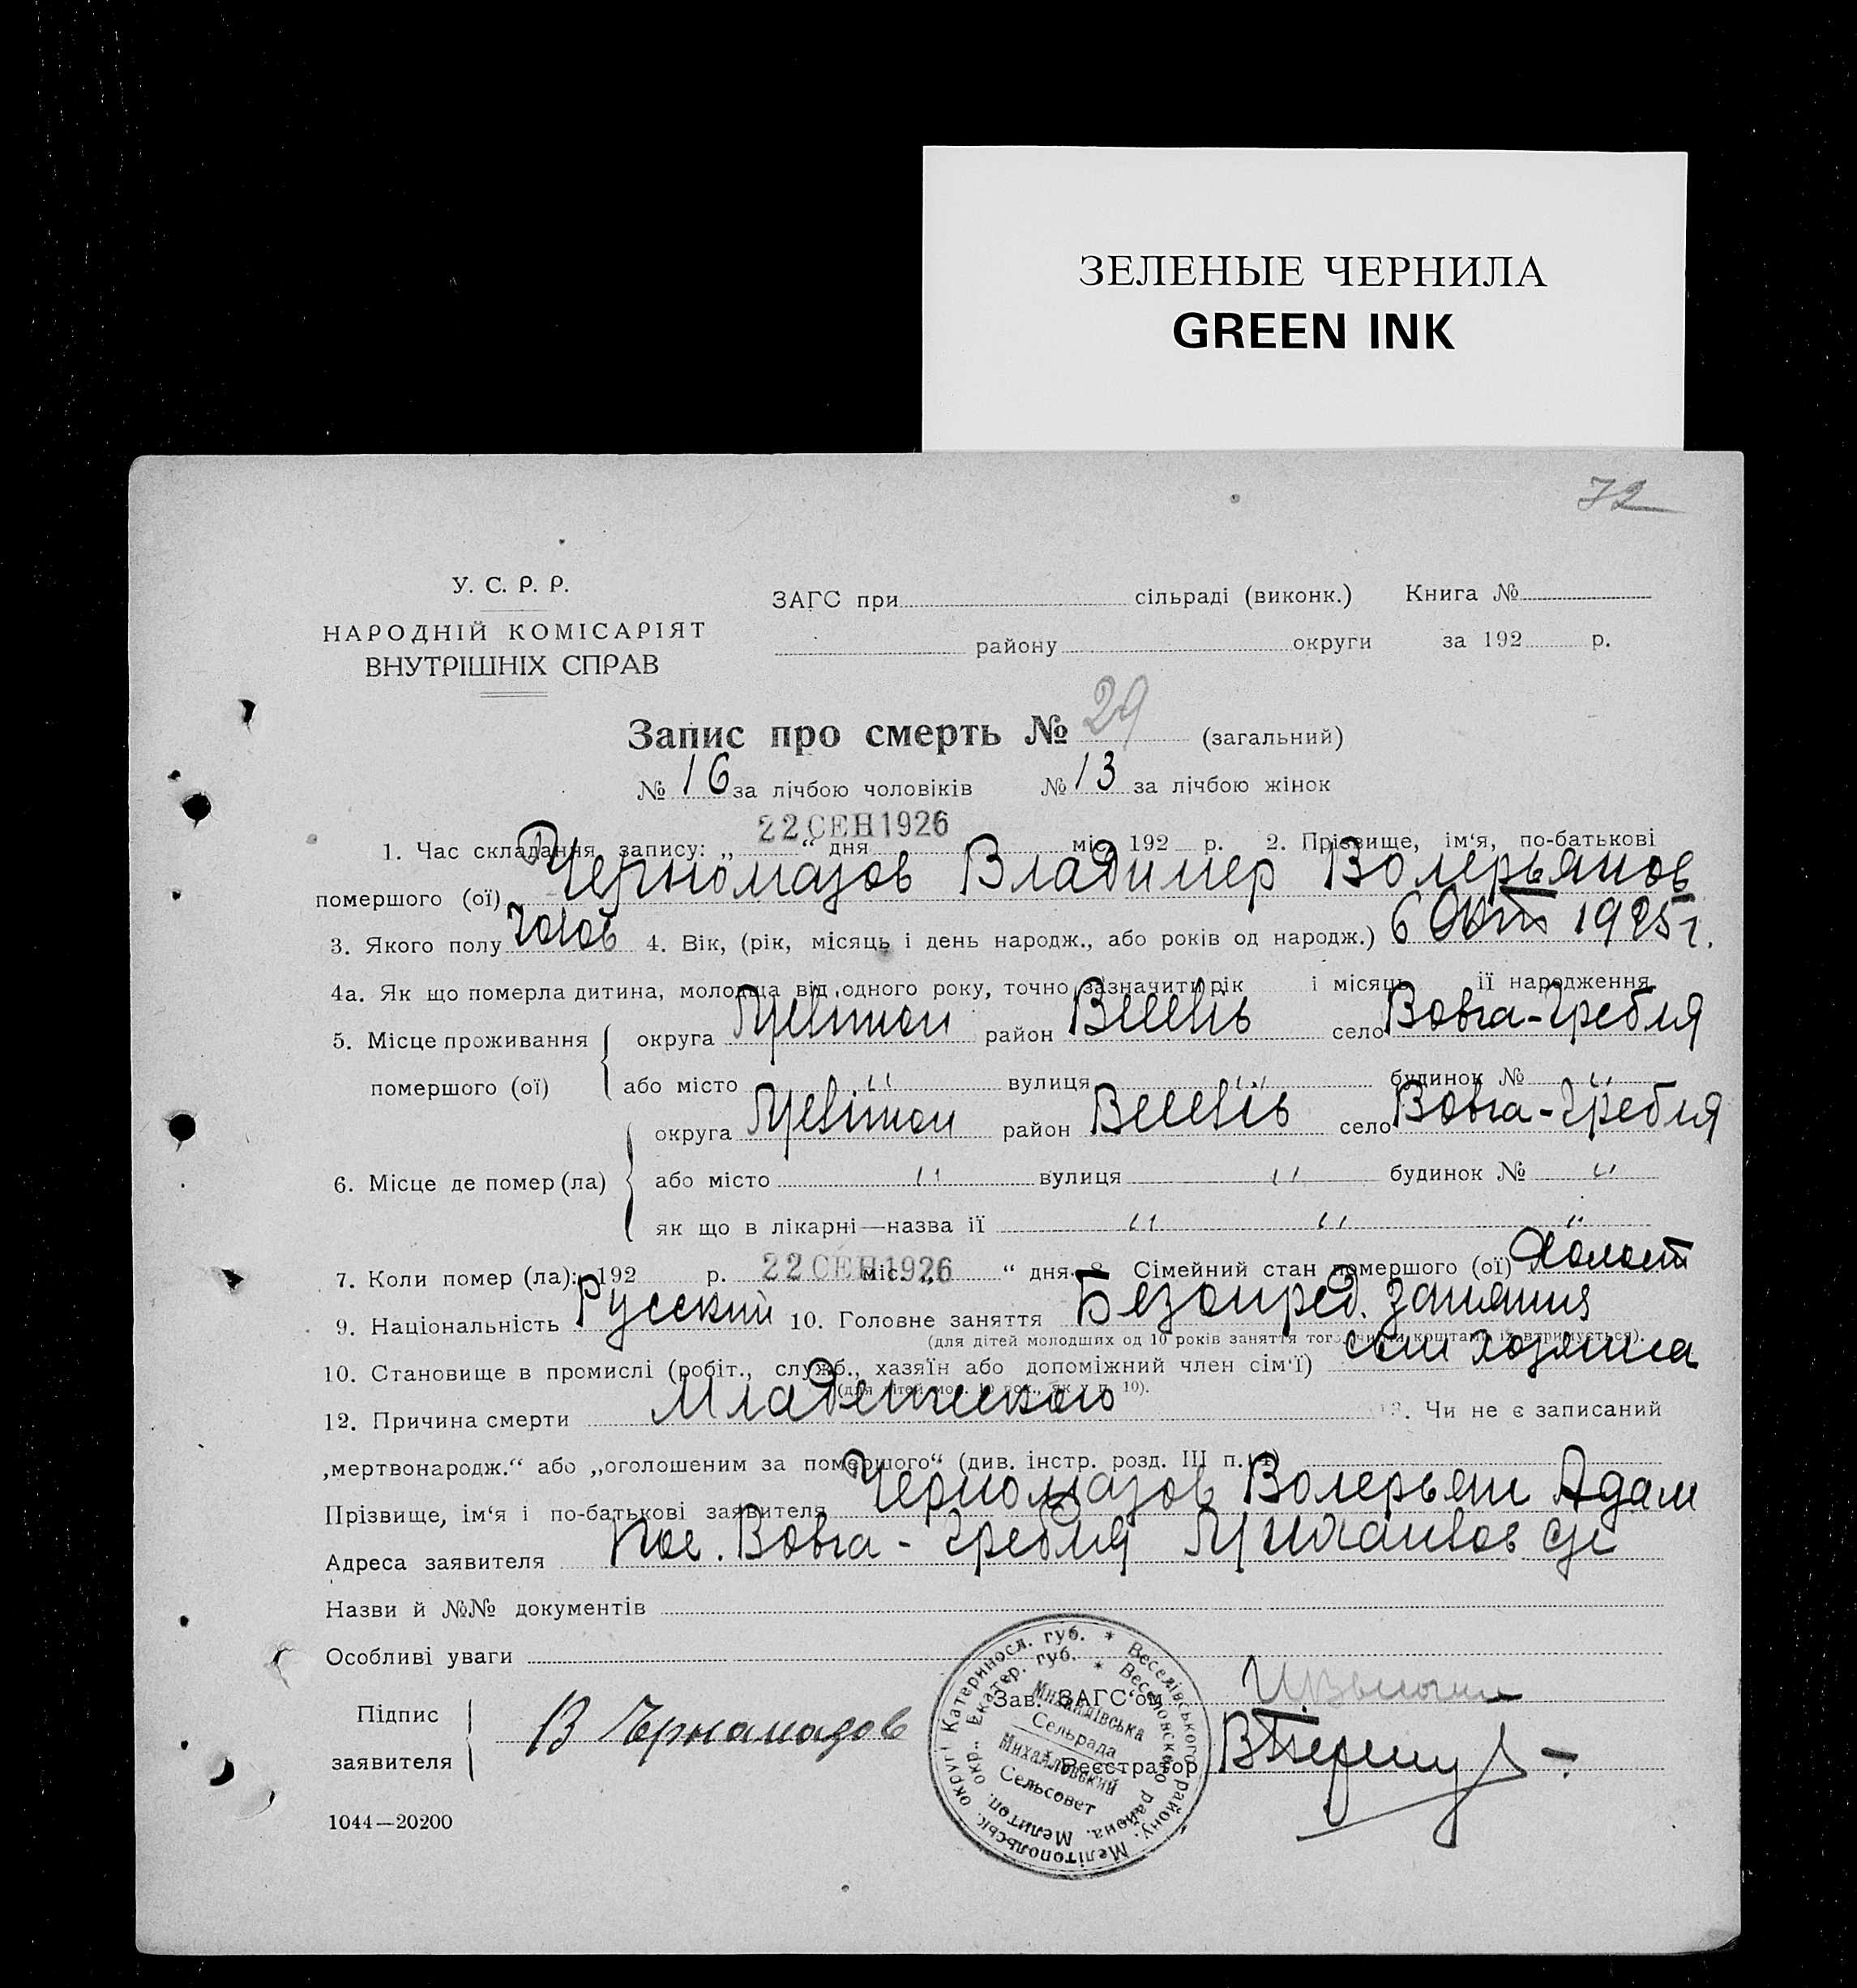 ЗЕЛЕНЫЕ ЧЕРНИЛА
GREEN INK
72
У. С. Р. Р.
НАРОДНІЙ КОМІСАРІЯТ
ВНУТРІШНІХ СПРАВ
ЗАГС при сільраді (виконк.) Книга №
району округи за 192 р.
Запис про смерть № 29 (загальний)
№ 16 за лічбою чоловіків № 13 за лічбою жінок
22 СЕН 1926
1. Час складання запису: „ “ дня міс. 192 р. 2. Прізвище, ім‘я, по-батькові
помершого (ої) Черномазов Владимер Волерьянов
3. Якого полу 4. Вік, (рік, місяць і день народж., або років од народж.) 6 Окт 1925 г.
4а. Як що померла дитина, молодща від одного року, точно зазначити рік і місяць її народження
5. Місце проживання округа район село Вовча-Гребля
помершого (ої) або місто " вулиця " будинок № "
округа район село Вовча-Гребля
6. Місце де помер (ла) або місто " вулиця " будинок № "
як що в лікарні—назва її " " "
7. Коли помер (ла): 192 р. 22 СЕН 1926 міс. „ “ дня 8. Сімейний стан помершого (ої) Холост
9. Національність Русский 10. Головне заняття Безопред. занятия
(для дітей молодших од 10 років заняття того, чиїми коштами їх втримується).
10. Становище в промислі (робіт., служб., хазяїн або допоміжний член сім‘ї) сын хозяина
(для дітей мол. 10 рок., як у п. 10).
12. Причина смерти Младенческого 13. Чи не є записаний
„мертвонародж.“ або „оголошеним за помершого“ (див. інстр. розд. III п. 4)
Прізвище, ім‘я і по-батькові заявителя Черномазов Волерьян Адам
Адреса заявителя пос. Вовча-гребля
Назви й №№ документів
Особливі уваги
Підпис
заявителя В Чернамазов
Зав. ЗАГС‘ом
Реєстратор
Катериносл. губ. * Веселівського району, Мелітопольськ. округи
Екатер. губ. * Веселовского района, Мелитоп. окр.
Михайлівська
Сельрада
Михайловский
Сельсовет
1044—20200